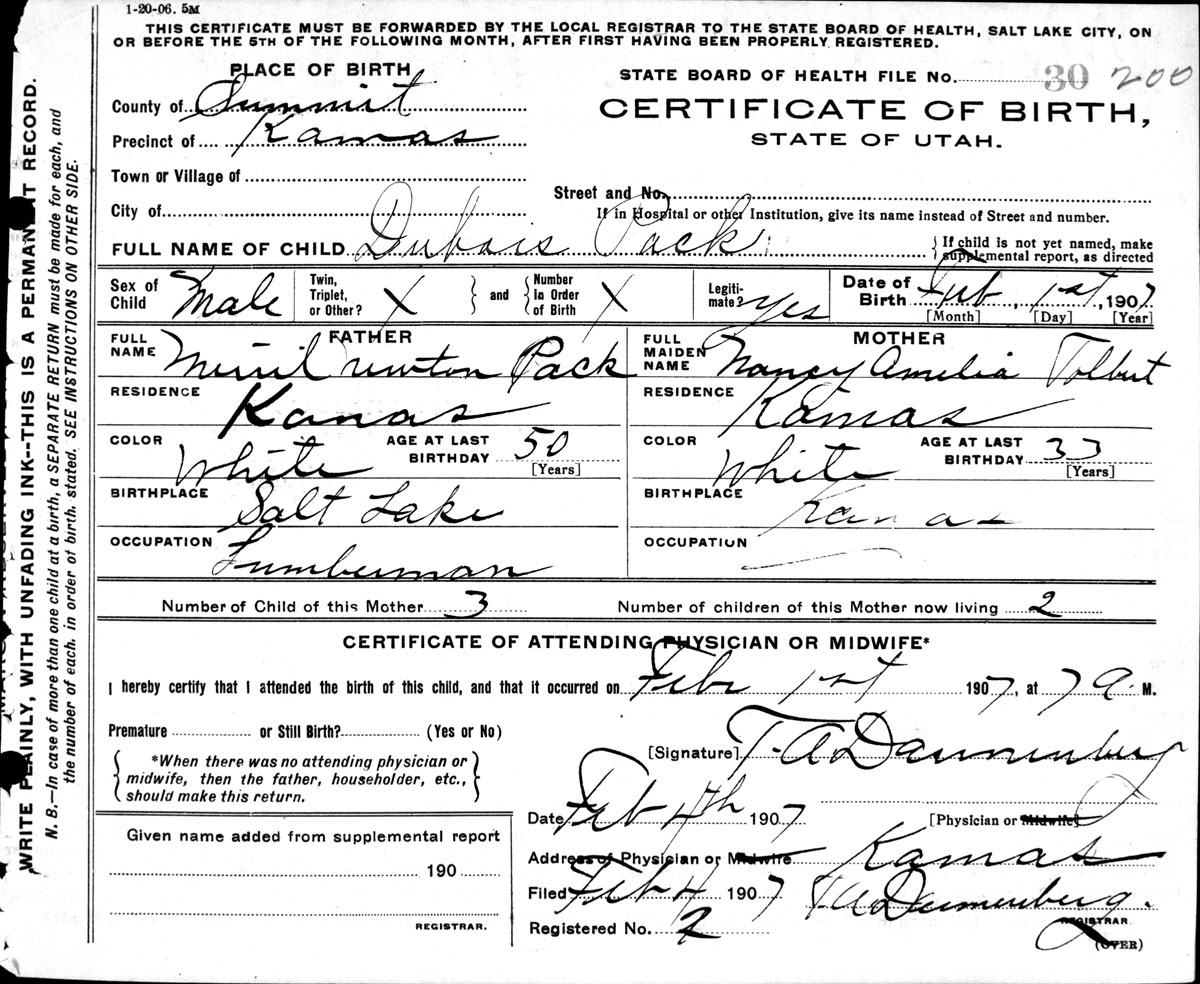 1-20-06. 5M
THIS CERTIFICATE MUST BE FORWARDED BY THE LOCAL REGISTRAR TO THE STATE BOARD OF HEALTH, SALT LAKE CITY, ON
OR BEFORE THE 5TH OF THE FOLLOWING MONTH, AFTER FIRST HAVING BEEN PROPERLY REGISTERED.
WRITE PLAINLY, WITH UNFADING INK--THIS IS A PERMANENT RECORD.
N. B.—In case of more than one child at a birth, a SEPARATE RETURN must be made for each, and
the number of each, in order of birth, stated. SEE INSTRUCTIONS ON OTHER SIDE.
PLACE OF BIRTH
County of Summit
Precinct of Kamas
Town or Village of
City of
STATE BOARD OF HEALTH FILE No. 30 200
CERTIFICATE OF BIRTH,
STATE OF UTAH.
Street and No.
If in Hospital or other Institution, give its name instead of Street and number.
FULL NAME OF CHILD Dubois Pack
If child is not yet named, make
supplemental report, as directed
Sex of Child Male
Twin, Triplet, or Other? X and Number in Order of Birth X
Legitimate? Yes
Date of Birth Feb, 1st, 1907
[Month] [Day] [Year]
FATHER
FULL NAME Merril Newton Pack
RESIDENCE Kamas
COLOR White AGE AT LAST BIRTHDAY 50
[Years]
BIRTHPLACE Salt Lake
OCCUPATION Lumberman
MOTHER
FULL MAIDEN NAME Nancy Amelia Tolbert
RESIDENCE Kamas
COLOR White AGE AT LAST BIRTHDAY 33
[Years]
BIRTHPLACE Kamas
OCCUPATION
Number of Child of this Mother 3 Number of children of this Mother now living 2
CERTIFICATE OF ATTENDING PHYSICIAN OR MIDWIFE*
I hereby certify that I attended the birth of this child, and that it occurred on Feb 1st 1907, at 7 a. M.
Premature or Still Birth? (Yes or No)
*When there was no attending physician or
midwife, then the father, householder, etc.,
should make this return.
[Signature] T. A. Dannenberg
[Physician or Midwife]
Date Feb 4th 1907
Address of Physician or Midwife Kamas
Filed Feb 4 1907 T A Dannenberg.
REGISTRAR
Registered No. 2
(OVER)
Given name added from supplemental report
190
REGISTRAR.